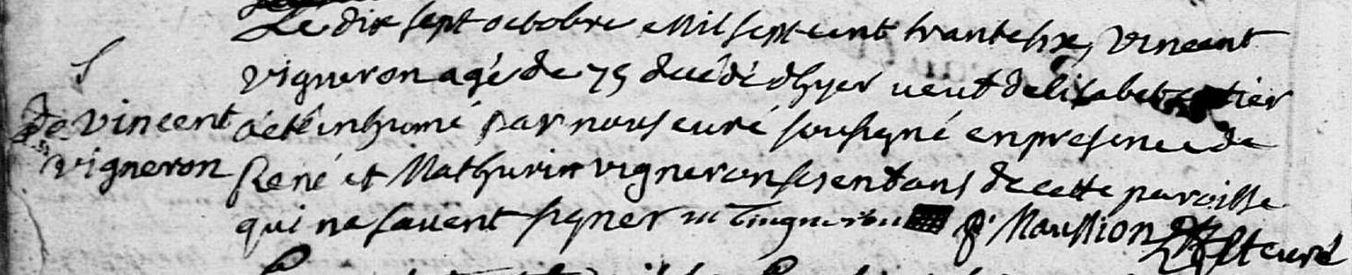 S
De vincent
vigneron
Le dix sept octobre mil sept cent trante six, vincent
vigneron agé de 75 decédé dhyer veuf delisabet
a eté inhumé par nous curé sousigné en presence de
René et Mathurin vigneron ses enfans de cette paroisse
qui ne savent signer Maussion curé